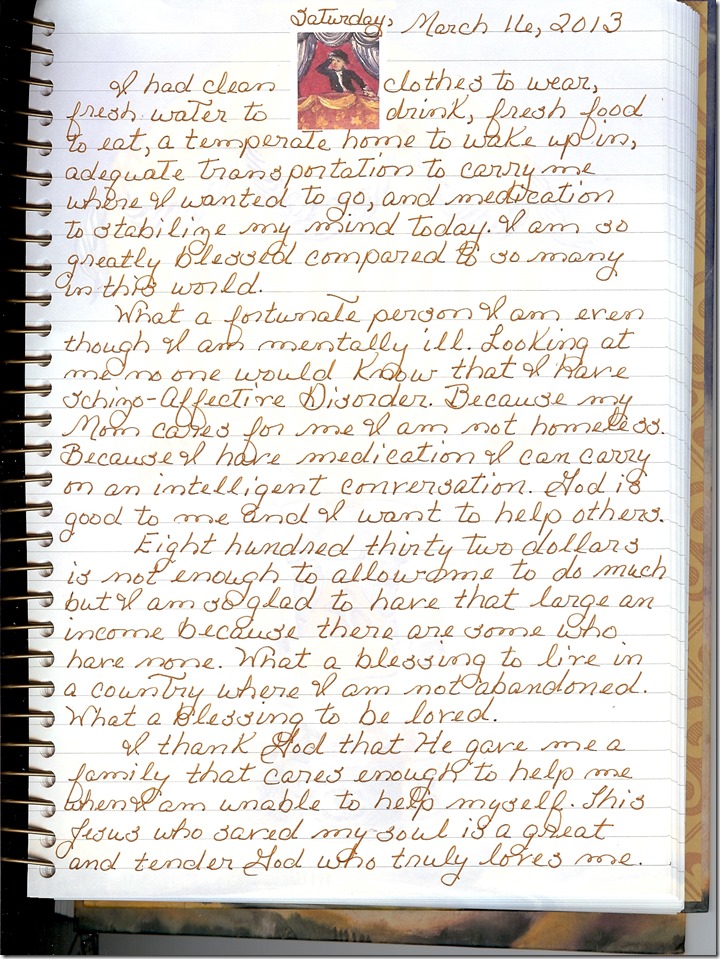 Saturday, March 16, 2013
I had clean clothes to wear,
fresh water to drink, fresh food
to eat, a temperate home to wake up in,
adequate transportation to carry me
where I wanted to go, and medication
to stabilize my mind today. I am so
greatly blessed compared to so many
in this world.
What a fortunate person I am even
though I am mentally ill. Looking at
me no one would know that I have
Schizo-Affective Disorder. Because my
Mom cares for me I am not homeless.
Because I have medication I can carry
on an intelligent conversation. God is
good to me and I want to help others.
Eight hundred thirty two dollars
is not enough to allow me to do much
but I am so glad to have that large an
income because there are some who
have none. What a blessing to live in
a country where I am not abandoned.
What a blessing to be loved.
I thank God that He gave me a
family that cares enough to help me
when I am unable to help myself. This
Jesus who saved my soul is a great
and tender God who truly loves me.